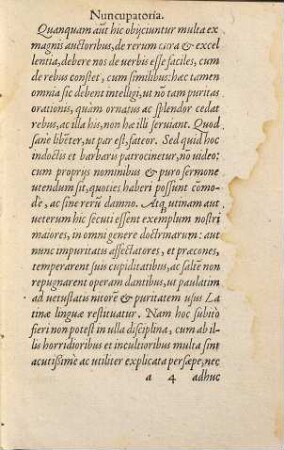 Nuncupatoria.
Quanquam aũt hic obijciuntur multa ex
magnis auctoribus, de rerum cura & excel
lentia, debere nos de verbis esse faciles, cum
de rebus constet, cum similibus: hæc tamen
omnia sic debent intellegi, ut nõ tam puritas
orationis, quàm ornatus ac splendor cedat
rebus, ac illa his, non hæ illi seruiant. Quod
sanè libẽter, ut par est, fateor. Sed quid hoc
indoctis et barbaris patrocinetur, nõ uideo:
cum proprijs nominibus & puro sermone
utendum sit, quoties haberi possunt cõmo-
de, ac sine rerũ damno. Atq; utinam aut
ueterum hic secuti essent exemplum nostri
maiores, in omni genere doctrinarum: aut
nunc impuritatis affectatores, et præcones,
temperarent suis cupiditatibus, ac saltẽ non
repugnarent operam dantibus, ut paulatim
ad uetustatis nitorẽ & puritatem usus La-
tinæ linguæ restituatur. Nam hoc subitò
fieri non potest in ulla disciplina, cum ab il-
lis horridioribus et incultioribus multa sint
acutißimè ac utiliter explicata persæpe, nec
a 4 adhuc